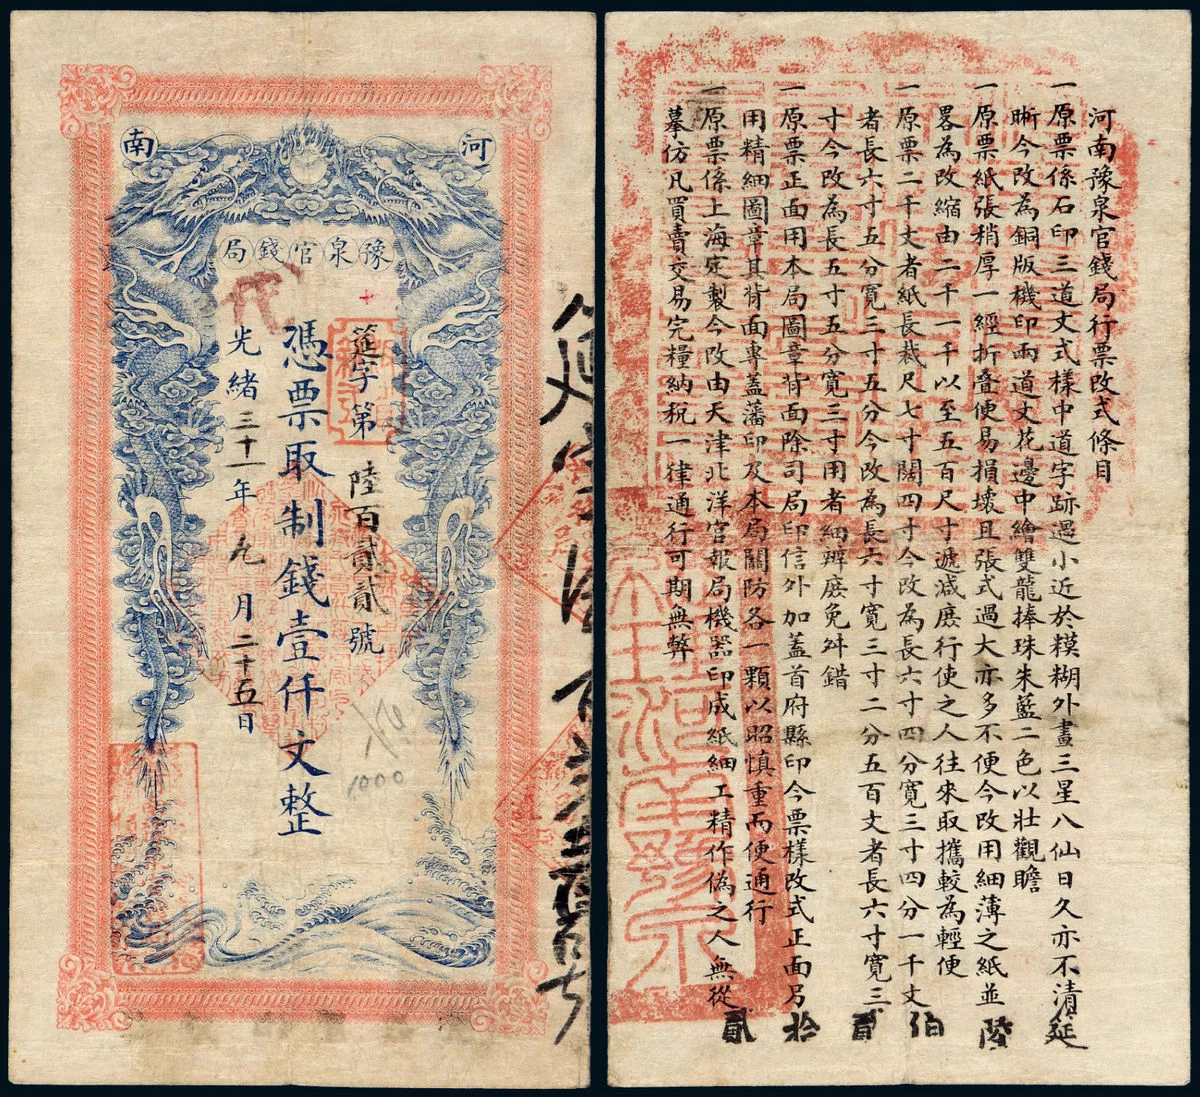 河南
豫泉官錢局
筵字第陸百貳貳號
憑票取制錢壹仟文整
光緒三十一年九月二十五日
1000
河南豫泉官錢局行票改式條目
一原票係石印三道文式樣中道字跡過小近於糢糊外畫三星八仙日久亦不清
晰今改為銅版機印兩道文花邊中繪雙龍捧珠朱藍二色以壯觀瞻
一原票紙張稍厚一經折叠便易損壞且張式過大亦多不便今改用細薄之紙並
畧為改縮由二千一千以至五百尺寸遞減庶行使之人往來取攜較為輕便
一原票二千文者紙長裁尺七寸闊四寸今改為長六寸四分寬三寸四分一千文
者長六寸五分寬三寸五分今改為長六寸寬三寸二分五百文者長六寸寬三
寸今改為長五寸五分寬三寸用者細辨庶免舛錯
一原票正面用本局圖章背面除司局印信外加蓋首府縣印今票樣改式正面另
用精細圖章其背面專蓋藩印及本局關防各一顆以昭慎重而便通行
一原票係上海定製今改由天津北洋官報局機器印成紙細工精作偽之人無從
摹仿凡買賣交易完糧納稅一律通行可期無弊
延陸伯貳拾貳